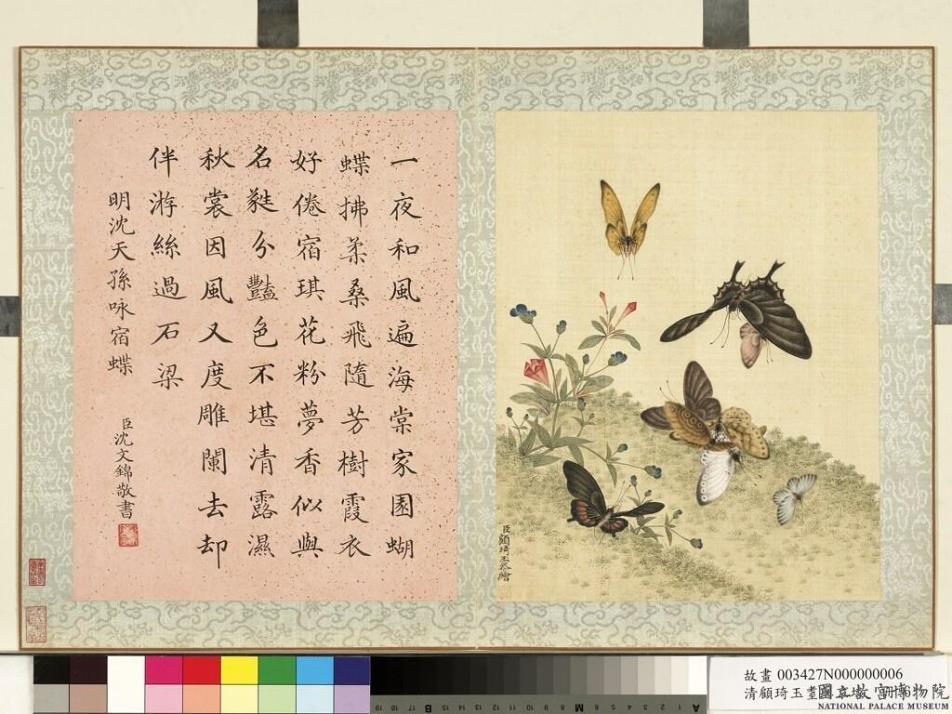 一夜和風遍海棠家園蝴
蝶拂柔桑飛隨芳樹霞衣
好倦宿琪花粉夢香似與
名蕤分豔色不堪清露濕
秋裳因風又度雕闌去却
伴游絲過石梁
明沈天孫咏宿蝶
臣沈文錦敬書
臣顧琦玉恭繪
故畫 003427N000000006
清顧琦玉畫
國立故宮博物院
NATIONAL PALACE MUSEUM